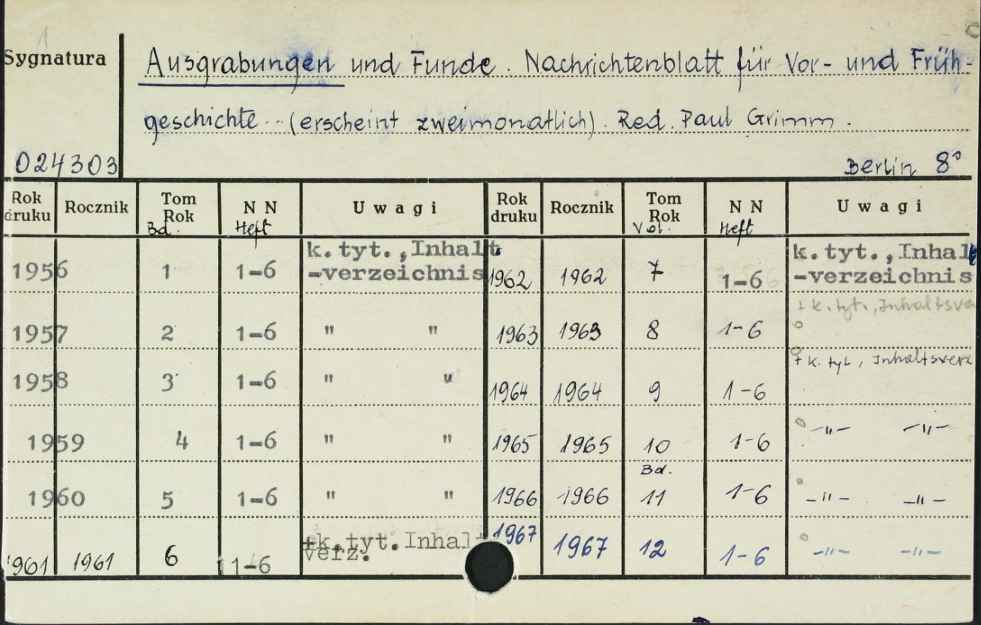 1
Sygnatura
Ausgrabungen und Funde. Nachrichtenblatt für Vor- und Früh-
geschichte (erscheint zweimonatlich). Red. Paul Grimm.
024303 Berlin 8°
Rok druku Rocznik Tom Rok Bd. NN Heft Uwagi Rok druku Rocznik Tom Rok Vol. NN Heft Uwagi
1956 1 1-6 k.tyt.,Inhalt-verzeichnis 1962 1962 7 1-6 k.tyt.,Inhalt-verzeichnis
1957 2 1-6 " " 1963 1963 8 1-6 + k.tyt., Inhaltsve
1958 3 1-6 " " 1964 1964 9 1-6 + k.tyt, Inhaltsverz
1959 4 1-6 " " 1965 1965 10 1-6 -"- -"-
1960 5 1-6 " " 1966 1966 Bd. 11 1-6 -"- -"-
1961 1961 6 1-6 +k.tyt.Inhalt verz. 1967 1967 12 1-6 -"- -"-